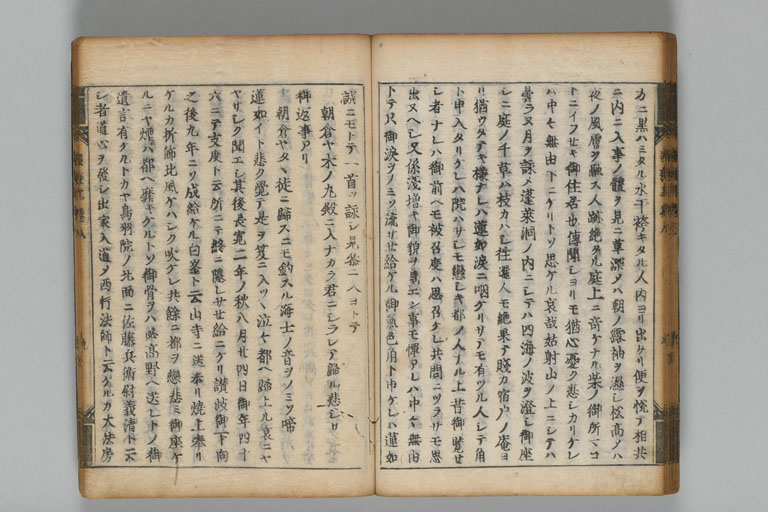 カニ黒ハミタル水干袴キタル人内ヨリ出ケリ便ヲ悦テ相共
ニ内ニ入事ノ體ヲ見ニ草深シハ朝ノ露袖ヲ濕シ松高ノハ
夜ノ風層ヲ融ス人跡絶タル庭上ニ奇ケナル柴ノ御所ニコ
トニイフセキ御住居也傳聞シヨリモ猶心憂ク悲シカリケレ
ハ中々無由トニケリトソ思ケル哀哉姑射山ノ上ニシテハ
雲ラヌ月ヲ詠メ蓬萊洞ノ内ニシテハ四海ノ波ヲ澄シ御座
シニ庭ノ千草ハ枝カハシ往還人モ絶果テ賤カ宿戸ノ庵ヨ
リ猶ウタテキ様ナレハ蓮如涙ニ咽ケリサテモ有ツル人シテ角
ト申入タリケレハ院ハサシモ戀シキ都ノ人ナル上昔御覽セ
シ者ナレハ御前ヘモ被召度ハ思召ケレ共問ニツラサモ思
出ヌヘシ又係淺増キ御貌ヲ見エン事モ憚アレハ中々無由
トテ只御涙ラノミソ流サせ給ケル御氣色角ト申ケレハ蓮如
誠ニモトテ一首ヲ詠シ見参ニ入ヨトテ
朝倉ヤ木ノ丸殿ニ入ナカラ君ニシラレテ歸ル悲シサ
御返事アリ
朝倉ヤタヽ徒ニ歸スニモ釣スル海士ノ音ヲノミソ啼
蓮如イト悲ク覺テ是ヲ笈ニ入ツヽ泣々都ヘ歸上ル哀ニヤ
ヤサシク聞エシ其後長寛二年ノ秋八月廿四日御年四十
六ニテ支度ト云所ニテ終ニ隱レサせ給ニケリ讃岐御下向
之後九年ニソ成給ケル白峯ト云山寺ニ送奉リ焼上奉リ
ケルカ折節北風ケハシク吹ケレ共餘ニ都ヲ戀悲ミ御座ケ
ルニヤ煙ハ都ヘ靡キケルトソ御骨ヲハ必高野ヘ送レトノ御
遺言有ケルトカヤ鳥羽院ノ北面ニ佐藤兵衛尉義清ト云
シ者道心ヲ發シ出家入道メ西行法師ト云ケルカ大法房